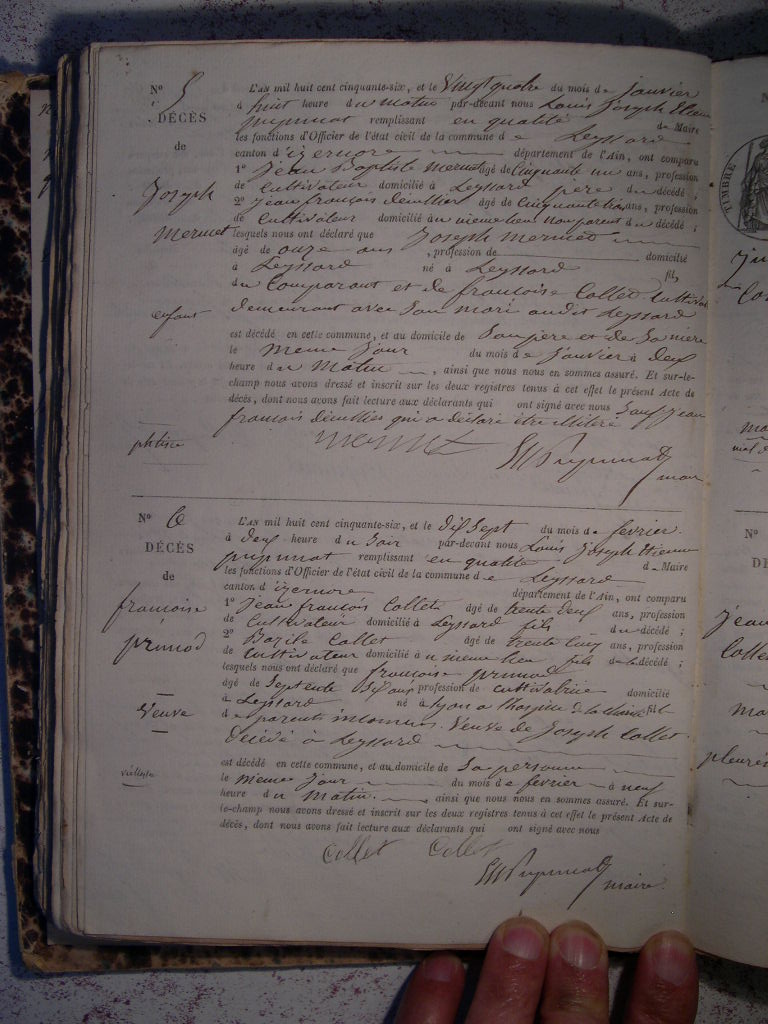 N° 5
DÉCÈS
de
Joseph
Mermet
enfant
phtisie
L'AN mil huit cent cinquante-six, et le Vingt quatre du mois de janvier
à huit heure du matin par-devant nous Louis Joseph Etienne
remplissant en qualité de Maire
les fonctions d'Officier de l'état civil de la commune de Leyssard
canton d'izernore département de l'Ain, ont comparu
1° Jean Baptiste Mermet âgé de Cinquante un ans, profession
de Cultivateur domicilié à Leyssard père du décédé ;
2° jean françois âgé de Cinquante ans, profession
de Cultivateur domicilié au meme lieu non parent du décédé ;
lesquels nous ont déclaré que Joseph Mermet
âgé de onze ans, profession de domicilié
à Leyssard né à Leyssard fils
du Comparant et de francoise Collet
demeurant avec Son mari audit Leyssard
est décédé en cette commune, et au domicile de Son père et de Sa mere
le meme jour du mois de janvier à deux
heure du Matin, ainsi que nous nous en sommes assuré. Et sur-le-
champ nous avons dressé et inscrit sur les deux registres tenus à cet effet le présent Acte de
décés, dont nous avons fait lecture aux déclarants qui ont signé avec nous Sauf Jean
francois qui a déclaré être illitéré
Mermet
maire
N° 6
DÉCÈS
de
francoise
primod
Veuve
vieillesse
L'AN mil huit cent cinquante-six, et le dix Sept du mois de fevrier
à deux heure du Soir par-devant nous Louis Joseph Etienne
remplissant en qualité de Maire
les fonctions d'Officier de l'état civil de la commune de Leyssard
canton d'izernore département de l'Ain, ont comparu
1° Jean françois Collet âgé de trente deux ans, profession
de Cultivateur domicilié à Leyssard fils du décédé ;
2° Bazile Collet âgé de trente cinq ans, profession
de Cultivateur domicilié au meme lieu fils de la décédé ;
lesquels nous ont déclaré que francoise primod
âgé de Septente Dix ans, profession de cultivatrice domicilié
à Leyssard né à Lyon a lhospice de la charité fil
de parents inconnus. Veuve de Joseph Collet
Décédé à Leyssard
est décédé en cette commune, et au domicile de Sa personne
le meme jour du mois de fevrier à neuf
heure du Matin, ainsi que nous nous en sommes assuré. Et sur-
le-champ nous avons dressé et inscrit sur les deux registres tenus à cet effet le présent Acte de
décés, dont nous avons fait lecture aux déclarants qui ont signé avec nous
Collet Collet
maire
TIMBRE